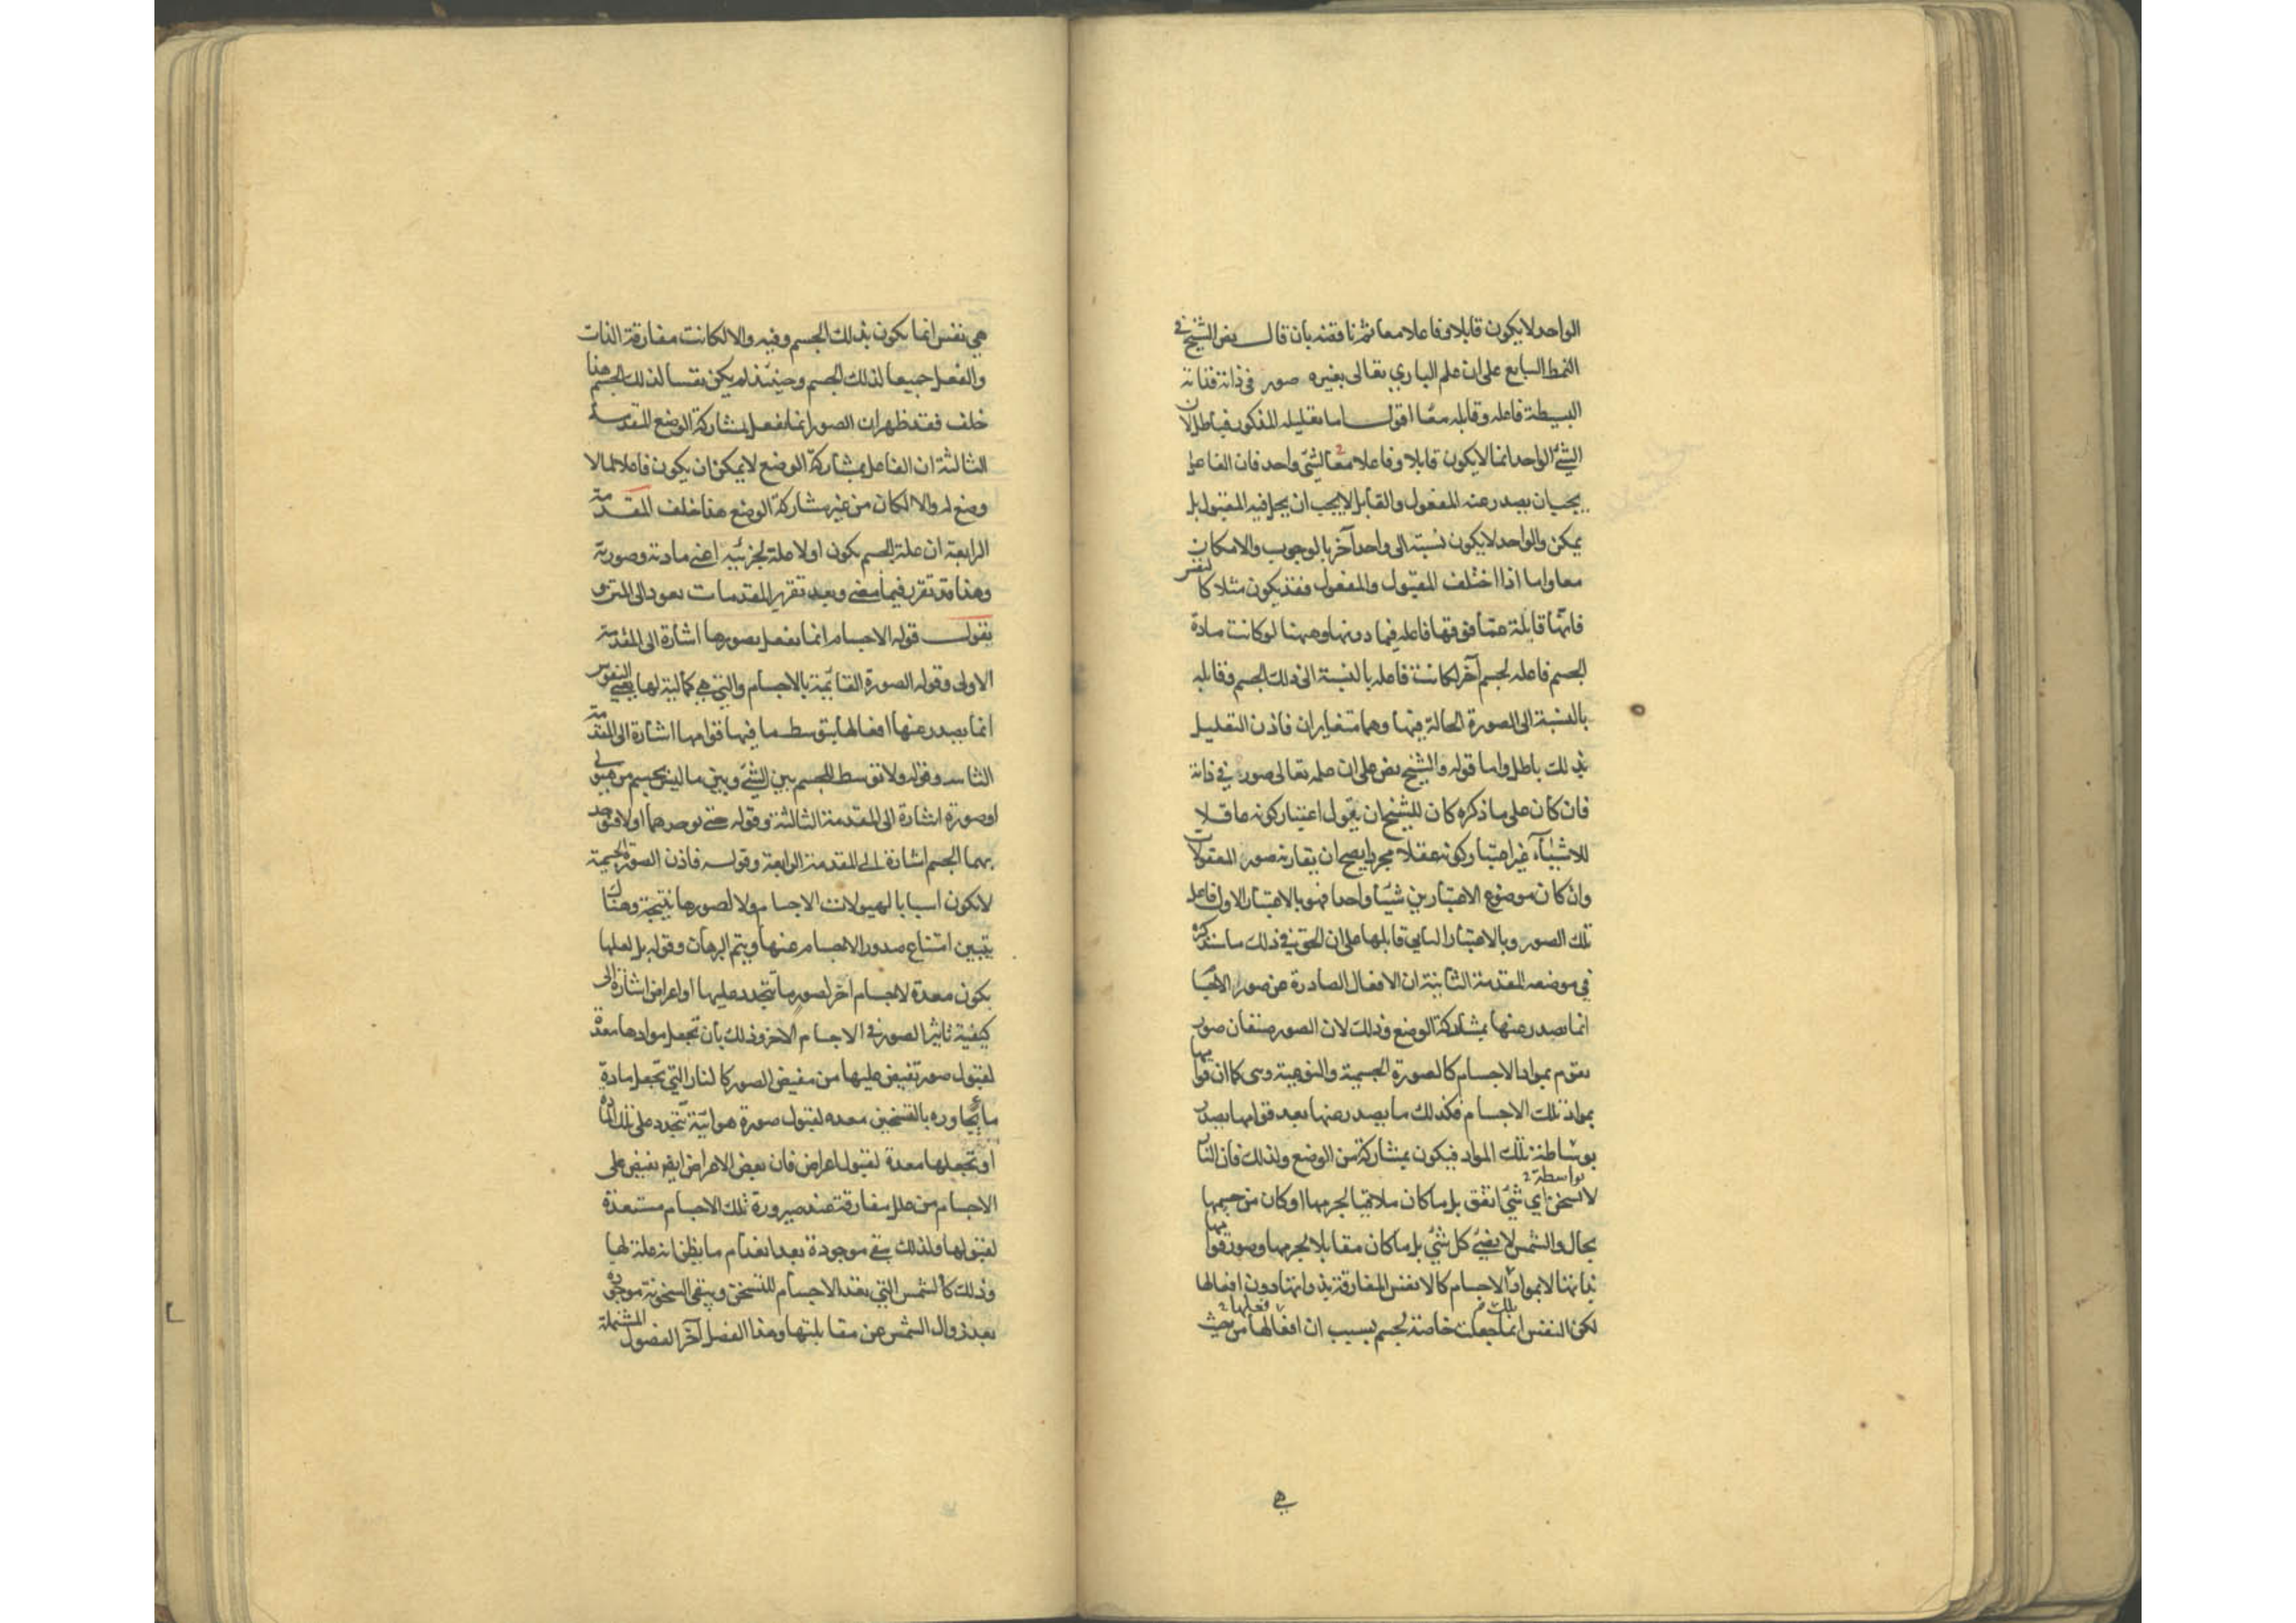 الواحد لا يكون قابلا وفاعلا معا ثم ناقضه بان قال نص الشيخ في
النمط السابع على ان علم الباري تعالى بغيره صور في ذاته فذاته
البسيطة فاعله وقابله معًا اقول اما تعليله المذكور فباطل لان
الشئ الواحد انما لا يكون قابلا وفاعلا معا لشئ واحد فان الفاعل
يجب ان يصدر عنه المفعول والقابل لا يجب ان يحل فيه المقبول بل
يمكن والواحد لا يكون نسبته الى واحد آخر بالوجوب والامكان
معا واما اذا اختلف المقبول والمفعول فقد يكون مثلا كالنفس
فانها قابلة عمّا فوقها فاعله فيما دونها وههنا لو كانت مادة
لجسم فاعله لجسم آخر لكانت فاعله بالنسبة الى ذلك الجسم وقابله
بالنسبة الى الصورة الحالة فيها وهما متغايران فاذن التعليل
بذلك باطل واما قوله والشيخ نص على ان علمه تعالى صور في ذاته
فان كان على ما ذكره كان للشيخ ان يقول اعتبار كونه عاقلا
للاشيآء غير اعتبار كونه عقلا مجردا يصح ان يقارنه صور المعقولات
وان كان موضوع الاعتبارين شيئا واحدا فهو بالاعتبار الاول فاعل
تلك الصور وبالاعتبار الثاني قابلها على ان الحق في ذلك ما سنذكره
في موضعه المقدمة الثانية ان الافعال الصادرة عن صور الاجسا
انما يصدر عنها بمشاركة الوضع وذلك لان الصور صنفان صور
تقوم بمواد الاجسام كالصورة الجسمية والنوعية وهي كما ان قوامها
بمواد تلك الاجسام فكذلك ما يصدر عنها بعد قوامها يصدر
بوساطة تلك المواد فيكون بمشاركة من الوضع ولذلك فان النار
بواسطة
لا تسخن اي شئ اتفق بل ما كان ملاقيا لجرمها او كان من جسمها
بحال والشمس لا يضئ كل شئ بل ما كان مقابلا لجرمها وصور قوامها
بذاتها لا بمواد الاجسام كالانفس المفارقة بذواتها دون افعالها
لكن النفس انما جعلت خاصة لجسم بسبب ان افعالها من حيث
هي
هي نفس انما يكون بذلك الجسم وفيه والا لكانت مفارقة الذات
والفعل جميعا لذلك الجسم وحينئذ لم يكن نفسا لذلك الجسم هذا
خلف فقد ظهر ان الصور انما تفعل بمشاركة الوضع المقدمة
الثالثة ان الفاعل بمشاركة الوضع لا يمكن ان يكون فاعلا لما لا
وضع له والا لكان من غير مشاركة الوضع هذا خلف المقدمة
الرابعة ان علة الجسم يكون اولا علة لجزئيه اعني مادته وصورته
وهذا قد تقرر فيما مضى وبعد تقرير المقدمات نعود الى المتن و
نقول قوله الاجسام انما تفعل بصورها اشارة الى المقدمة
الاولى وقوله الصورة القائمة بالاجسام والتي هي كمالية لها يعني النفوس
انما يصدر عنها افعالها بتوسط ما فيها قوامها اشارة الى المقدمة
الثانيه وقوله ولا توسط للجسم بين الشئ وبين ما ليس بجسم من هيولى
او صورة اشارة الى المقدمة الثالثة وقوله حتى يوجدهما اولا فيوجد
بهما الجسم اشارة الى المقدمة الرابعة وقوله فاذن الصور الجسمية
لا تكون اسبابا لهيولات الاجسام ولا لصورها نتيجة وهناك
يتبين امتناع صدور الاجسام عنها ويتم البرهان وقوله بل لعلها
يكون معدة لاجسام اخر لصور ما تتجدد عليها او اعراض اشارة الى
كيفية تاثير الصور في الاجسام الاخر وذلك بان تجعل موادها معدة
لقبول صور تفيض عليها من مفيض الصور كالنار التي تجعل مادة
ما يجاوره بالتسخين معده لقبول صورة هوائية تتجدد على تلك المادة
او تجعلها معدة لقبول اعراض فان بعض الاعراض ايضا تفيض على
الاجسام من علل مفارقة عند صيرورة تلك الاجسام مستعدة
لقبولها ولذلك يبقى موجودة بعد انعدام ما يظن انه علة لها
وذلك كالشمس التي تعد الاجسام للتسخن ويبقى السخونة موجودة
بعد زوال الشمس عن مقابلتها وهذا الفصل آخر الفصول المشتملة